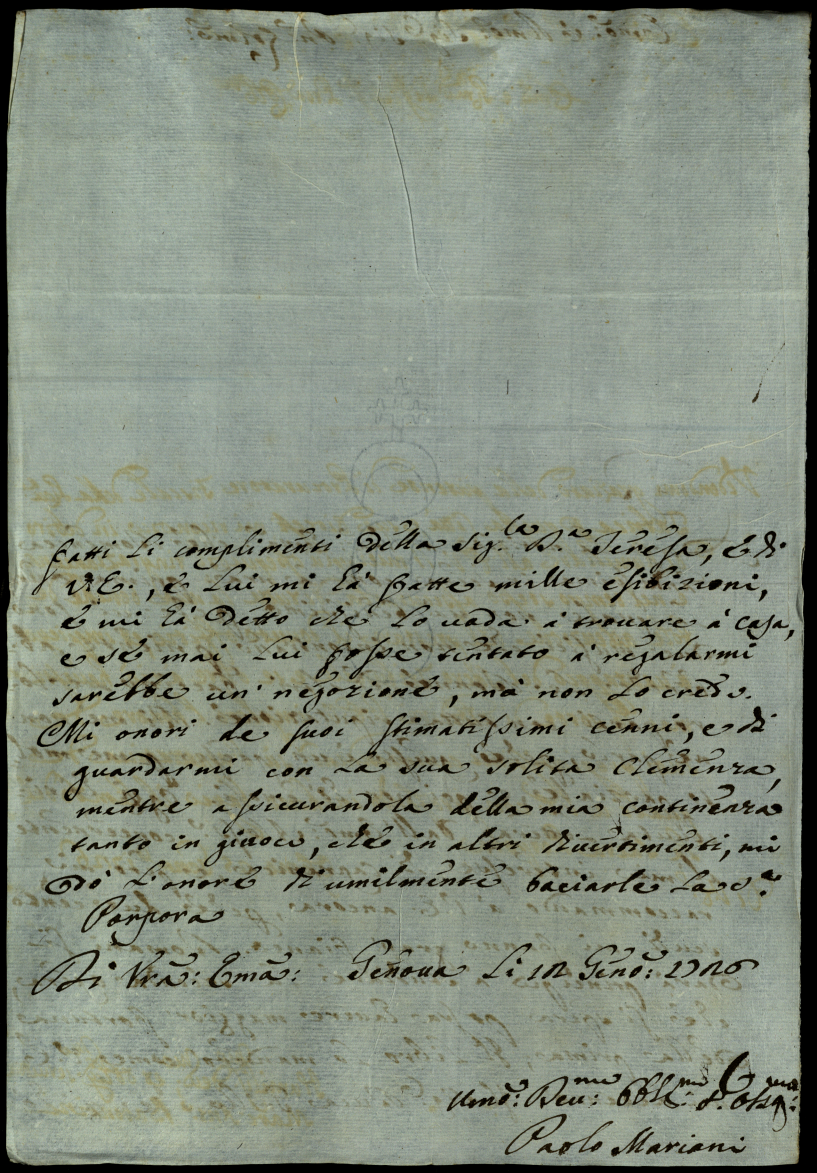 fatti li complimenti della Sig.ra D.a Teresa, e di
V.E., e lui mi hà fatte mille esibizioni,
è mi hà detto che lo vada à trovare à casa,
e se mai lui fosse tentato à regalarmi
sarebbe un negozione, mà non lo credo.
Mi onori de suoi stimatissimi cenni, e di
guardarmi con la sua solita Clemenza,
mentre assicurandola della mia continenza
tanto in giuoco, che in altri divertimenti, mi
dò l'onore di umilmente baciarle la S.a
Porpora
Di Vrã: Emã: Genova li 12 Genõ: 1726
Umõ: Dev.mo: Obbl.mo:
Paolo Mariani